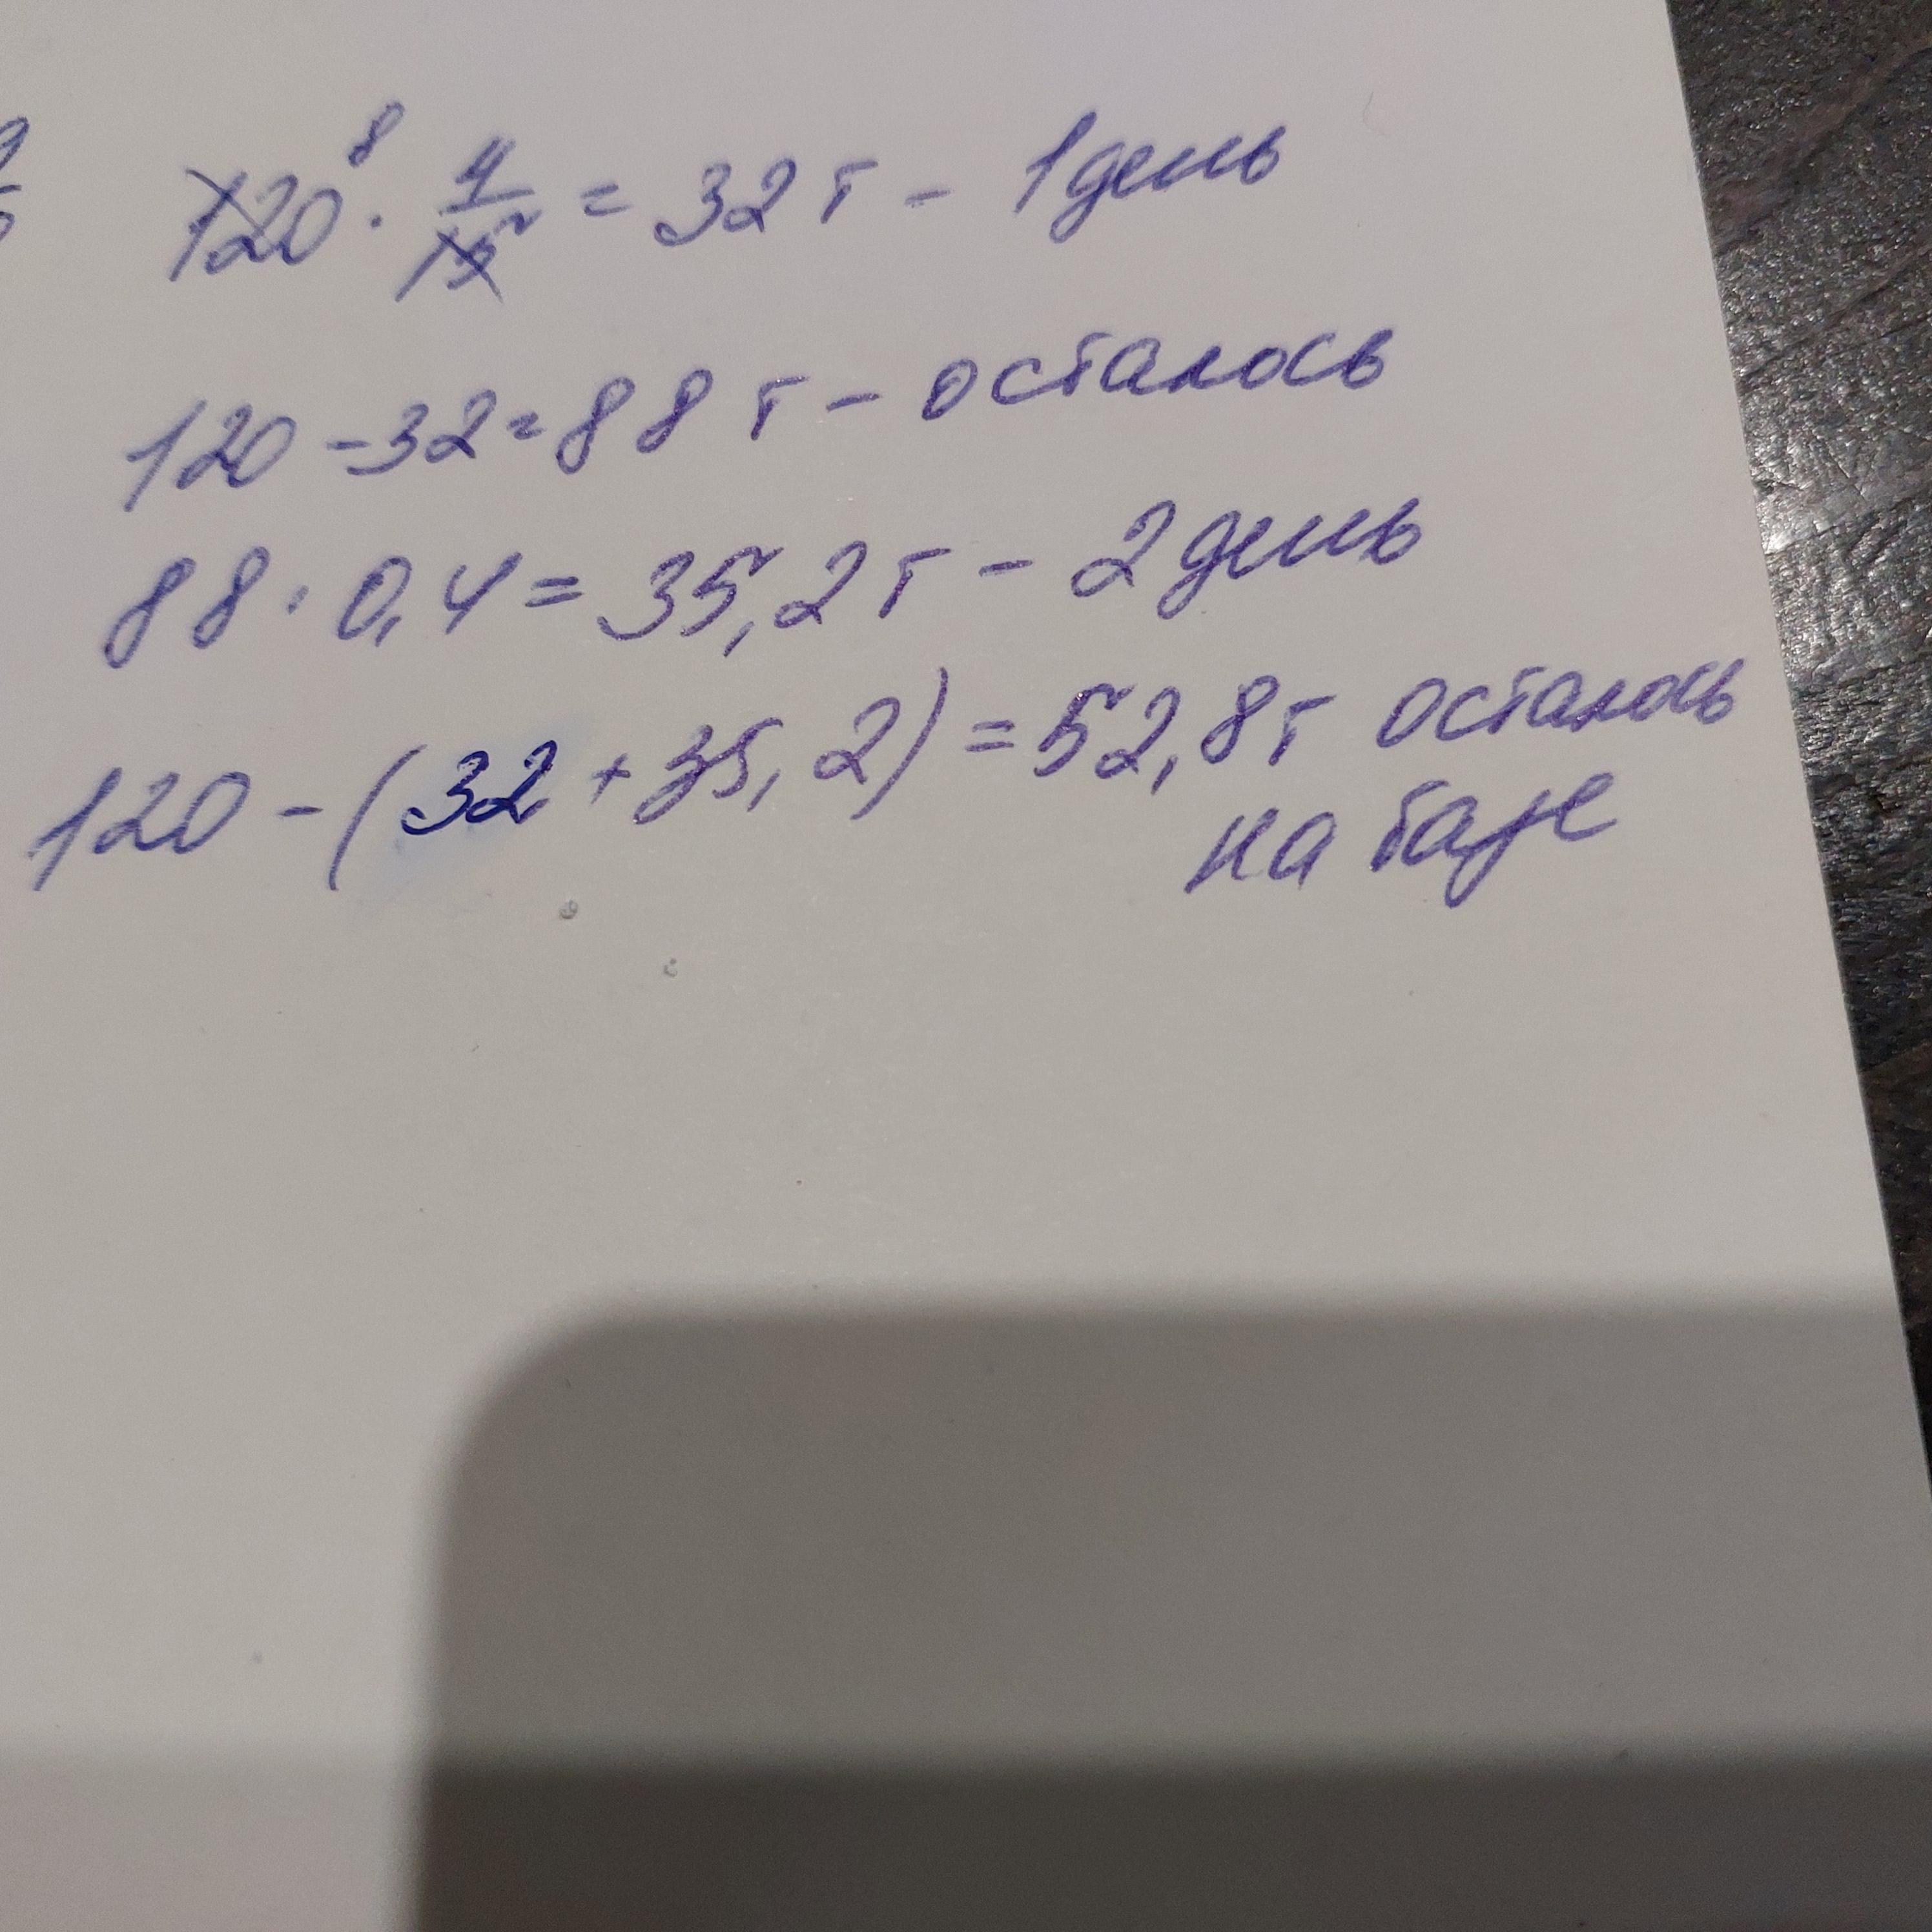 120 8 · 4/15 = 32 т - 1 день
120 - 32 = 88 т - осталось
88 · 0,4 = 35,2 т - 2 день
120 - (32 + 35,2) = 52,8 т осталось
на базе